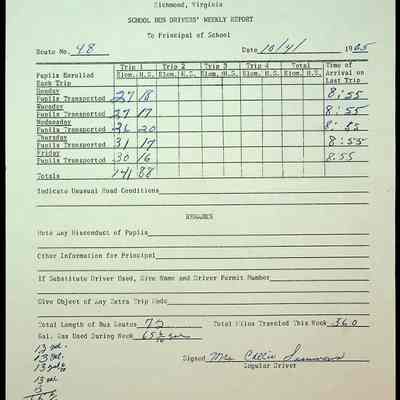 Richmond, Virginia
SCHOOL BUS DRIVERS' WEEKLY REPORT
To Principal of School
Route No. 48 Date 10/4/ 1965
Trip 1 Trip 2 Trip 3 Trip 4 Total Time of
Pupils Enrolled Elem. H.S. Elem. H.S. Elem. H.S. Elem. H.S. Elem. H.S. Arrival on
Each Trip Last Trip
Monday
Pupils Transported 27 18 8:55
Tuesday
Pupils Transported 27 17 8:55
Wednesday
Pupils Transported 26 20 8:55
Thursday
Pupils Transported 31 17 8:55
Friday
Pupils Transported 30 16 8:55
Totals 141 88
Indicate Unusual Road Conditions
REMARKS
Note Any Misconduct of Pupils
Other Information for Principal
If Substitute Driver Used, Give Name and Driver Permit Number
Give Object of Any Extra Trip Made
Total Length of Bus Routes 72 Total Miles Traveled This Week 360
Gal. Gas Used During Week 65
13 gal.
13 gal.
13 gal.
13
Signed Mrs Callie
Regular Driver